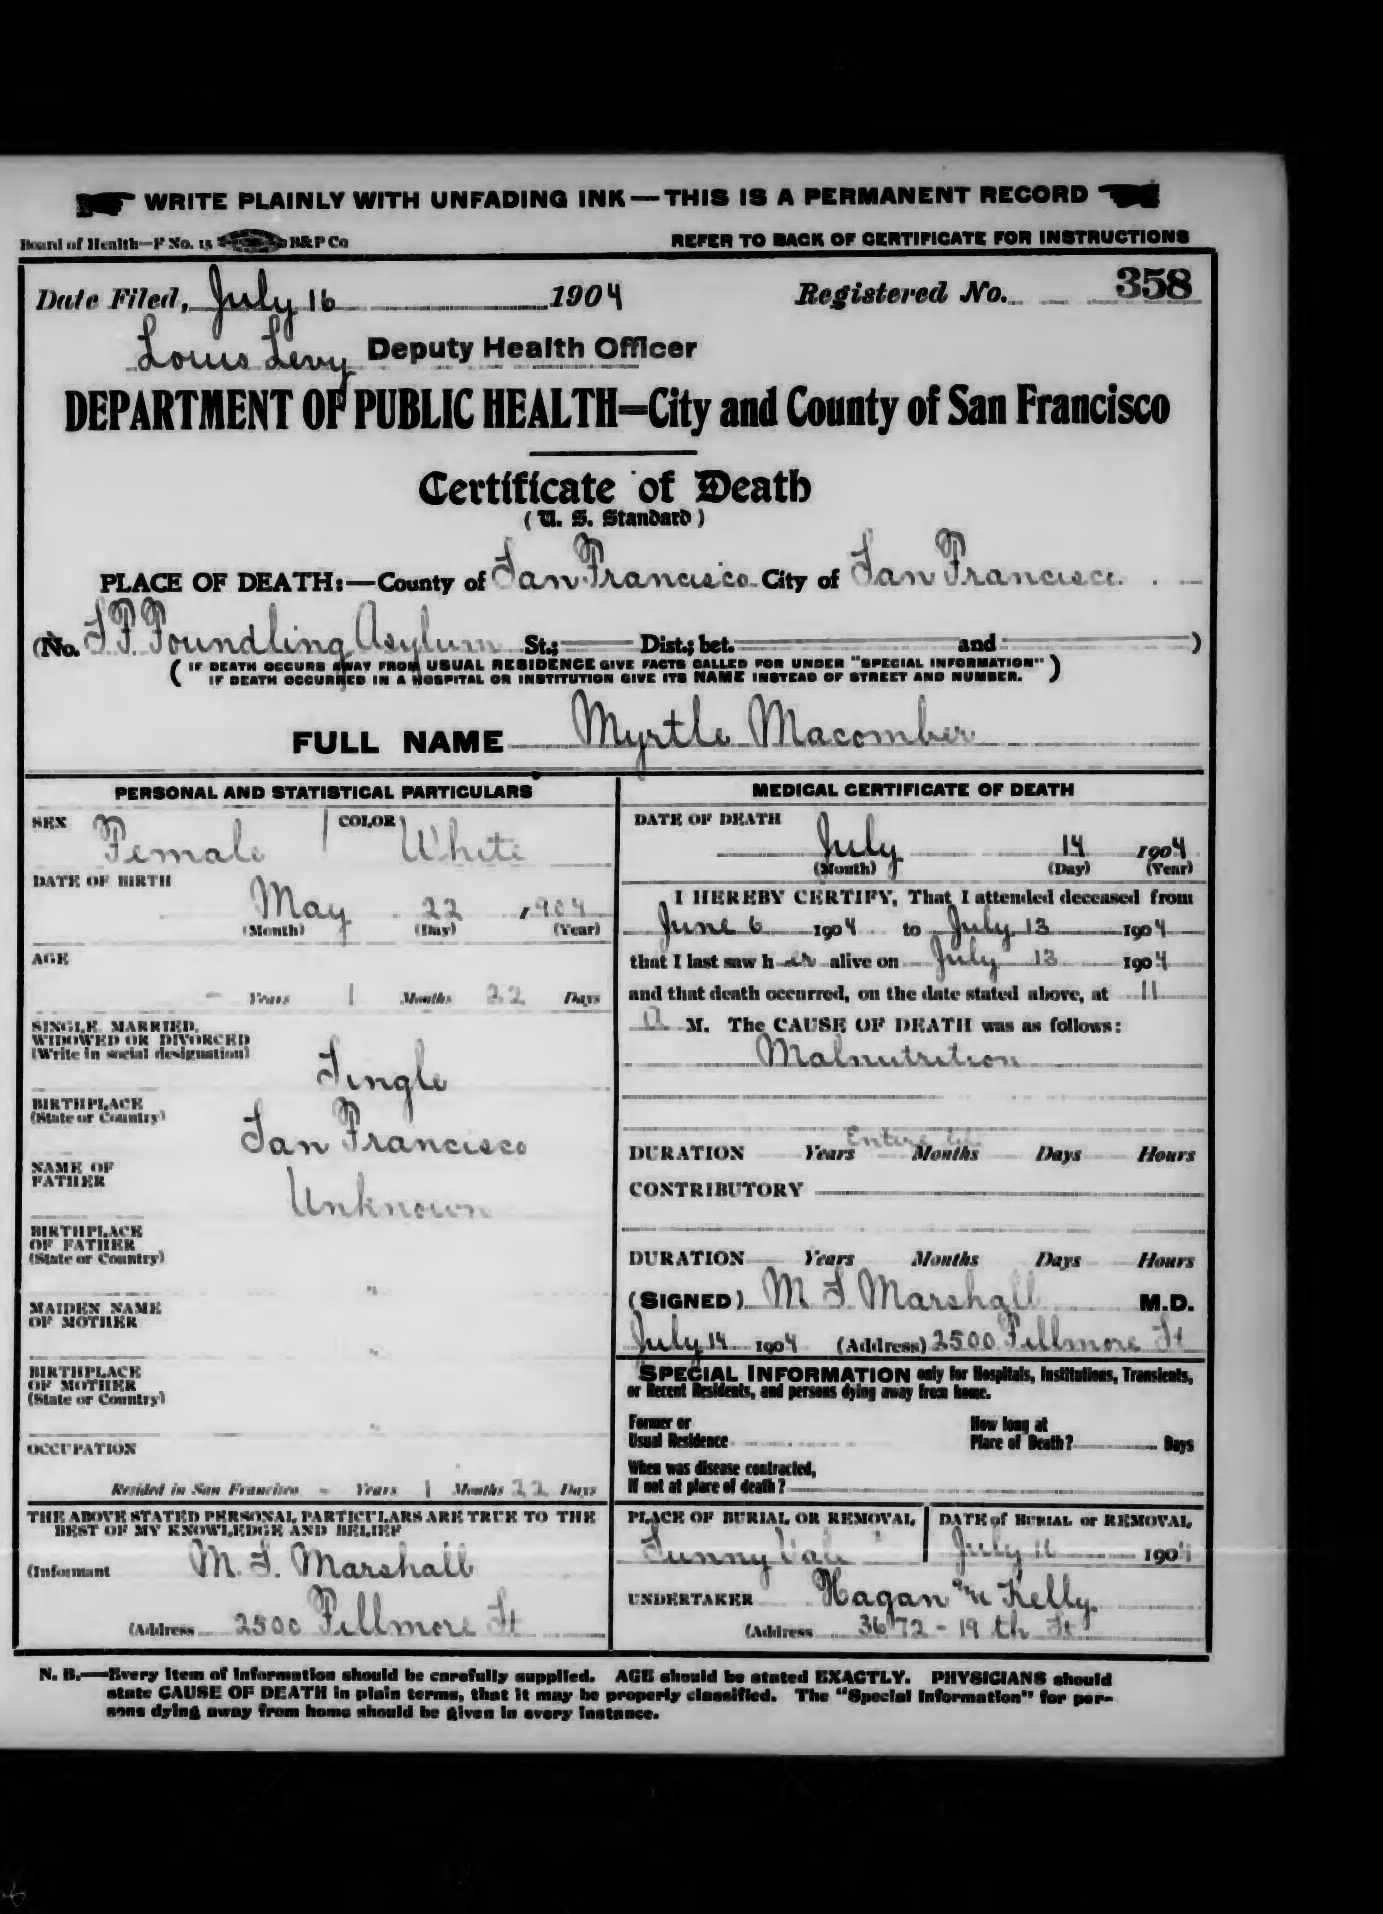 WRITE PLAINLY WITH UNFADING INK — THIS IS A PERMANENT RECORD
Board of Health—F No. 15 B&P Co
REFER TO BACK OF CERTIFICATE FOR INSTRUCTIONS
Date Filed, July 16 1904 Registered No. 358
Louis Levy Deputy Health Officer
DEPARTMENT OF PUBLIC HEALTH=City and County of San Francisco
Certificate of Death
(U. S. Standard)
PLACE OF DEATH:—County of San Francisco City of San Francisco
(No. S F Foundling Asylum St.; Dist.; bet. and )
( IF DEATH OCCURS AWAY FROM USUAL RESIDENCE GIVE FACTS CALLED FOR UNDER "SPECIAL INFORMATION" )
IF DEATH OCCURRED IN A HOSPITAL OR INSTITUTION GIVE ITS NAME INSTEAD OF STREET AND NUMBER.
FULL NAME Myrtle Macomber
PERSONAL AND STATISTICAL PARTICULARS
SEX Female COLOR White
DATE OF BIRTH
May 22 1904
(Month) (Day) (Year)
AGE
- Years 1 Months 22 Days
SINGLE, MARRIED,
WIDOWED OR DIVORCED
(Write in social designation)
Single
BIRTHPLACE
(State or Country)
San Francisco
NAME OF
FATHER
Unknown
BIRTHPLACE
OF FATHER
(State or Country)
"
MAIDEN NAME
OF MOTHER
"
BIRTHPLACE
OF MOTHER
(State or Country)
"
OCCUPATION
Resided in San Francisco - Years 1 Months 22 Days
THE ABOVE STATED PERSONAL PARTICULARS ARE TRUE TO THE
BEST OF MY KNOWLEDGE AND BELIEF
(Informant M. S. Marshall
(Address 2500 Fillmore St
MEDICAL CERTIFICATE OF DEATH
DATE OF DEATH
July 14 1904
(Month) (Day) (Year)
I HEREBY CERTIFY, That I attended deceased from
June 6 1904 to July 13 1904
that I last saw her alive on July 13 1904
and that death occurred, on the date stated above, at 11
A M. The CAUSE OF DEATH was as follows:
Malnutrition
Entire
DURATION Years Months Days Hours
CONTRIBUTORY
DURATION Years Months Days Hours
(SIGNED) M S Marshall M.D.
July 14 1904 (Address) 2500 Fillmore St
SPECIAL INFORMATION only for Hospitals, Institutions, Transients,
or Recent Residents, and persons dying away from home.
Former or
Usual Residence
How long at
Place of Death? Days
When was disease contracted,
If not at place of death?
PLACE OF BURIAL OR REMOVAL
Sunny Vale
DATE of BURIAL or REMOVAL
July 16 1904
UNDERTAKER Hagan Mc Kelly
(Address 3672 - 19 th St
N. B.—Every item of information should be carefully supplied. AGE should be stated EXACTLY. PHYSICIANS should
state CAUSE OF DEATH in plain terms, that it may be properly classified. The "Special Information" for per-
sons dying away from home should be given in every instance.